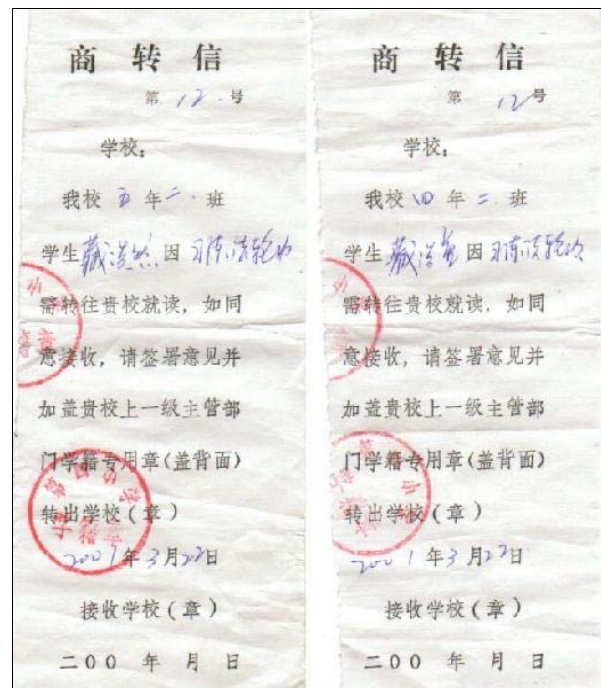 商转信
第12号
学校：
我校五年二班
学生臧浩然因习炼法轮功
需转往贵校就读，如同
意接收，请签署意见并
加盖贵校上一级主管部
门学籍专用章(盖背面)
转出学校(章)
2001年3月22日
接收学校(章)
二00 年 月 日
商转信
第12号
学校：
我校四年二班
学生臧浩 因习炼法轮功
需转往贵校就读，如同
意接收，请签署意见并
加盖贵校上一级主管部
门学籍专用章(盖背面)
转出学校(章)
2001年3月22日
接收学校(章)
二00 年 月 日